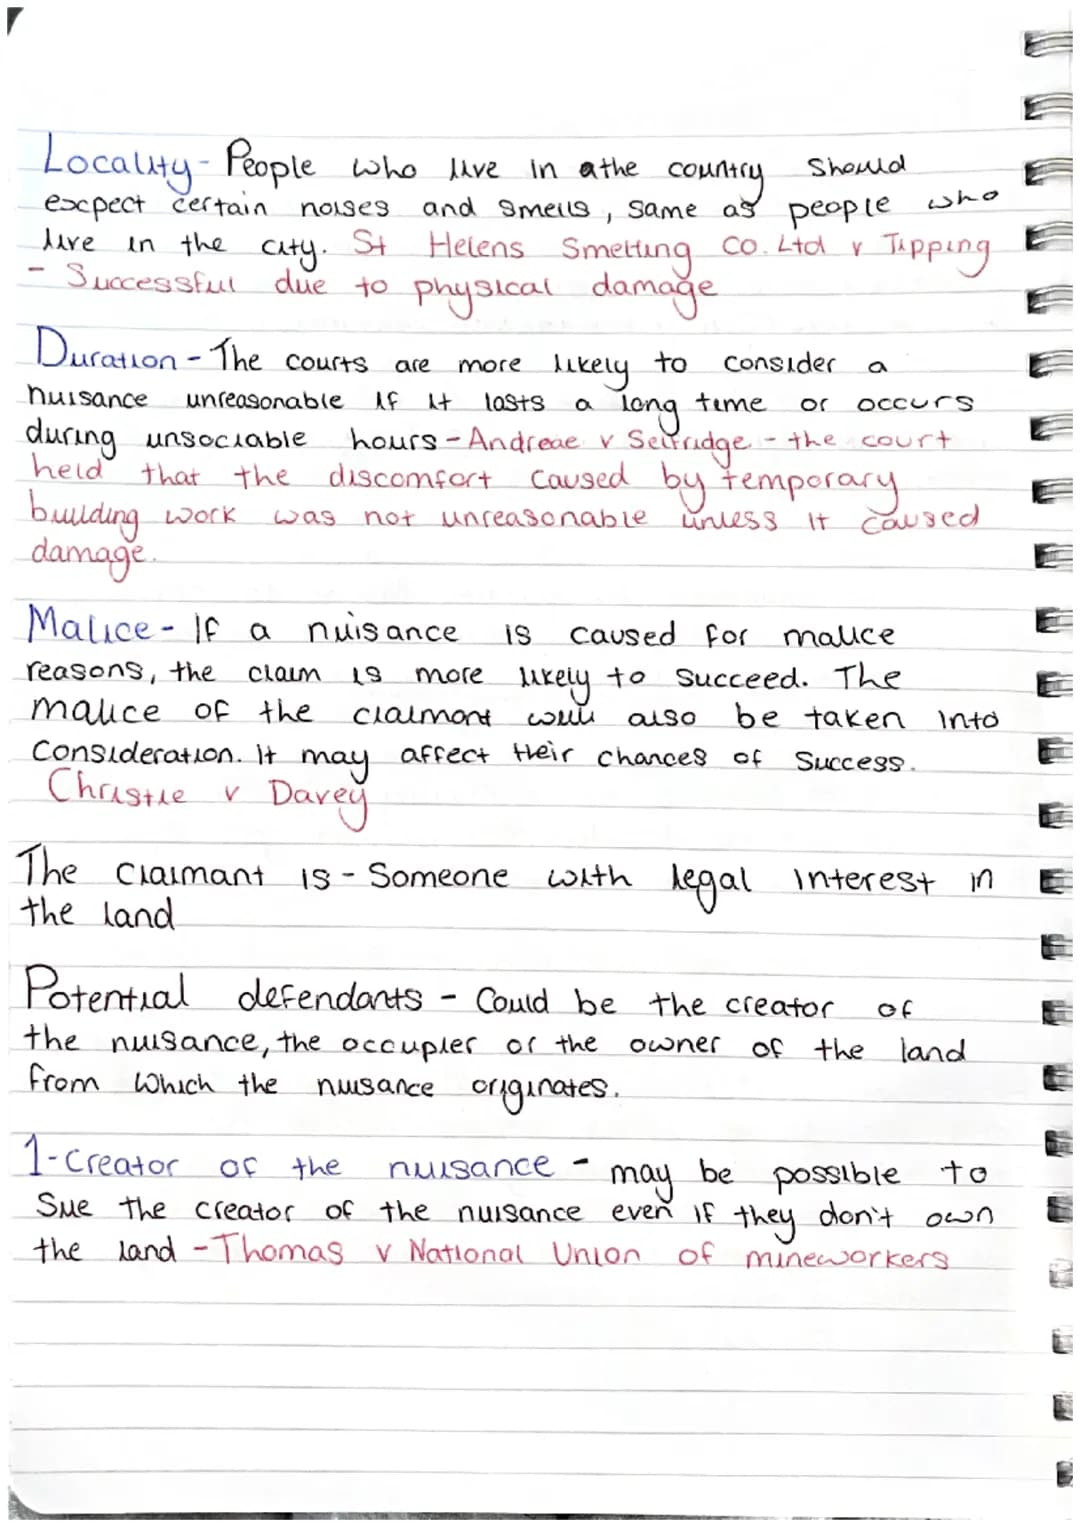 Locality - People who live in athe country should
expect certain noises and smells, same as people who
live in the city. St Helens Smelting Co. Ltd v Tipping
- Successful due to physical damage
Duration - The courts are more likely to consider a
nuisance unreasonable if it lasts a long time or occurs
during unsociable hours - Andreae v Selfridge - the court
held that the discomfort caused by temporary
building work was not unreasonable unless it caused
damage.
Malice - If a nuisance is caused for malice
reasons, the claim is more likely to succeed. The
malice of the claimant will also be taken into
consideration. It may affect their chances of success.
Christie v Davey
The claimant is - Someone with legal interest in
the land
Potential defendants - Could be the creator of
the nuisance, the occupier or the owner of the land
from which the nuisance originates.
1-Creator of the nuisance - may be possible to
sue the creator of the nuisance even if they don't own
the land - Thomas v National Union of mineworkers